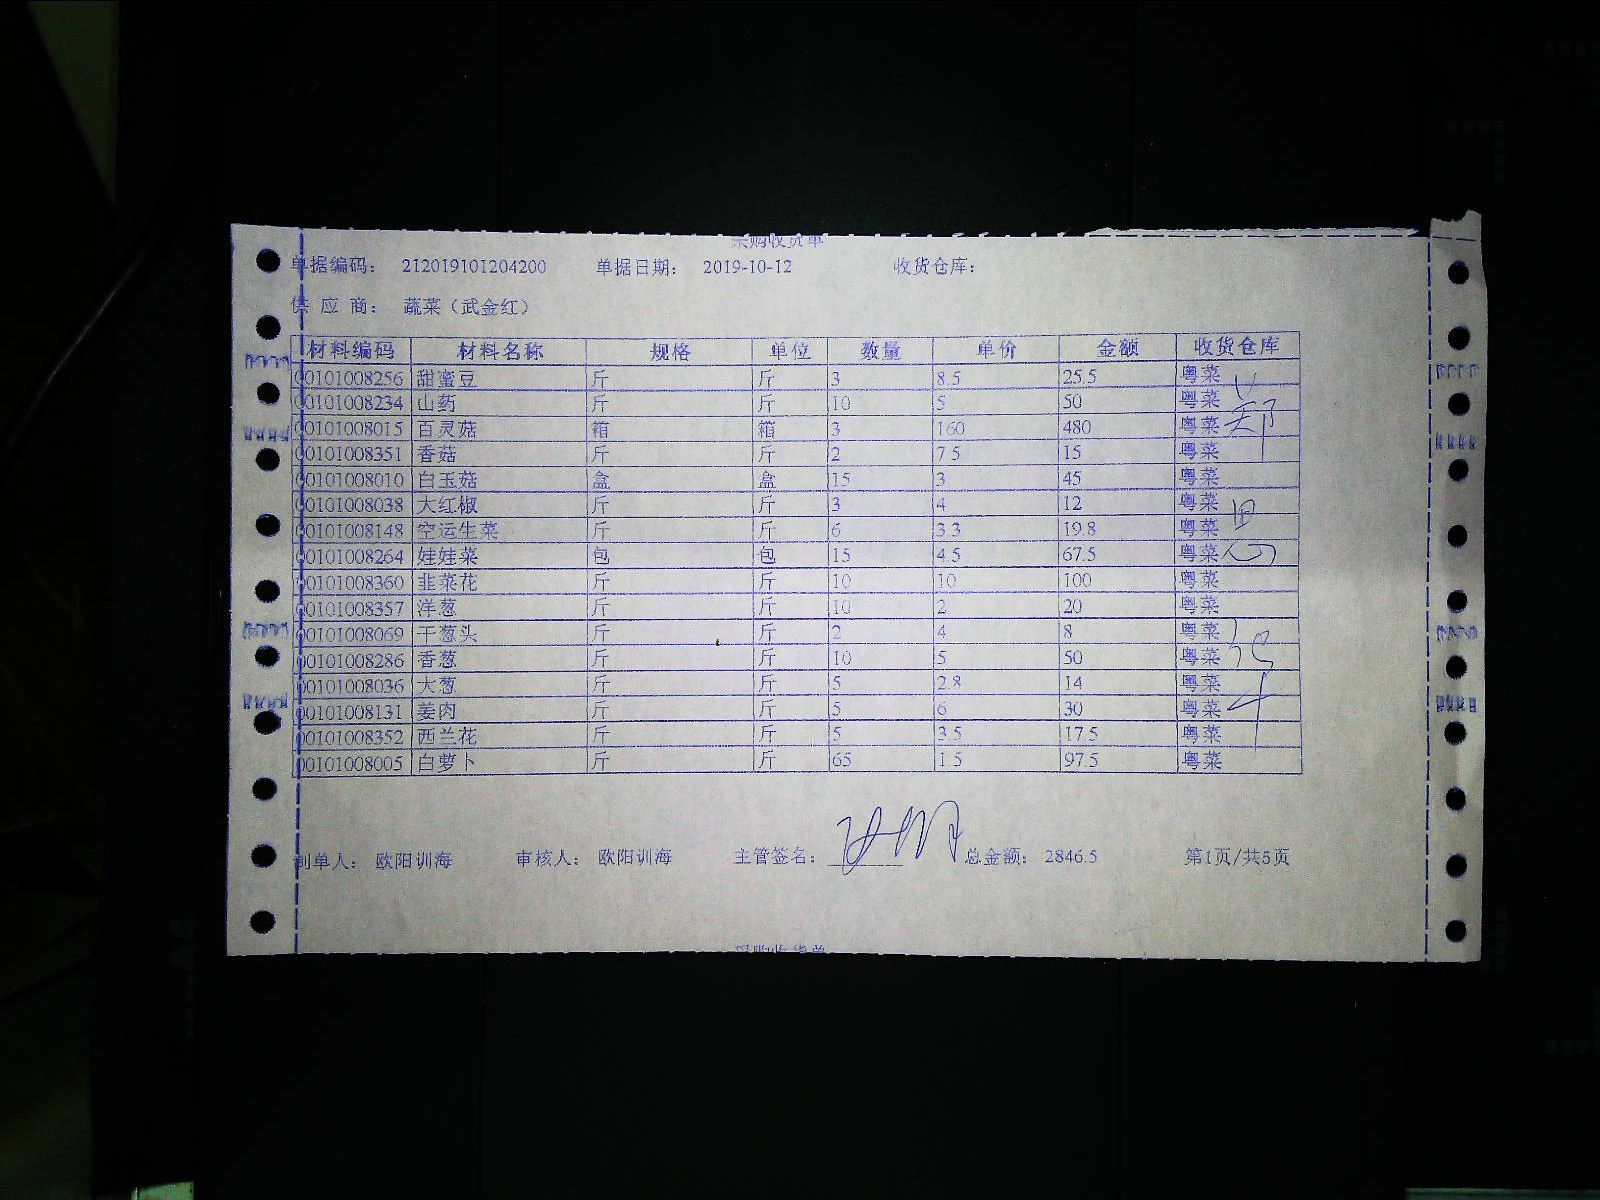 采购收货单
单据编码： 212019101204200 单据日期： 2019-10-12 收货仓库：
供 应 商： 蔬菜（武金红）
材料编码 材料名称 规格 单位 数量 单价 金额 收货仓库
00101008256 甜蜜豆 斤 斤 3 8.5 25.5 粤菜
00101008234 山药 斤 斤 10 5 50 粤菜
00101008015 百灵菇 箱 箱 3 160 480 粤菜
00101008351 香菇 斤 斤 2 7.5 15 粤菜
00101008010 白玉菇 盒 盒 15 3 45 粤菜
00101008038 大红椒 斤 斤 3 4 12 粤菜
00101008148 空运生菜 斤 斤 6 3.3 19.8 粤菜
00101008264 娃娃菜 包 包 15 4.5 67.5 粤菜
00101008360 韭菜花 斤 斤 10 10 100 粤菜
00101008357 洋葱 斤 斤 10 2 20 粤菜
00101008069 干葱头 斤 斤 2 4 8 粤菜
00101008286 香葱 斤 斤 10 5 50 粤菜
00101008036 大葱 斤 斤 5 2.8 14 粤菜
00101008131 姜肉 斤 斤 5 6 30 粤菜
00101008352 西兰花 斤 斤 5 3.5 17.5 粤菜
00101008005 白萝卜 斤 斤 65 1.5 97.5 粤菜
制单人： 欧阳训海 审核人： 欧阳训海 主管签名： 总金额： 2846.5 第1页/共5页
采购收货单